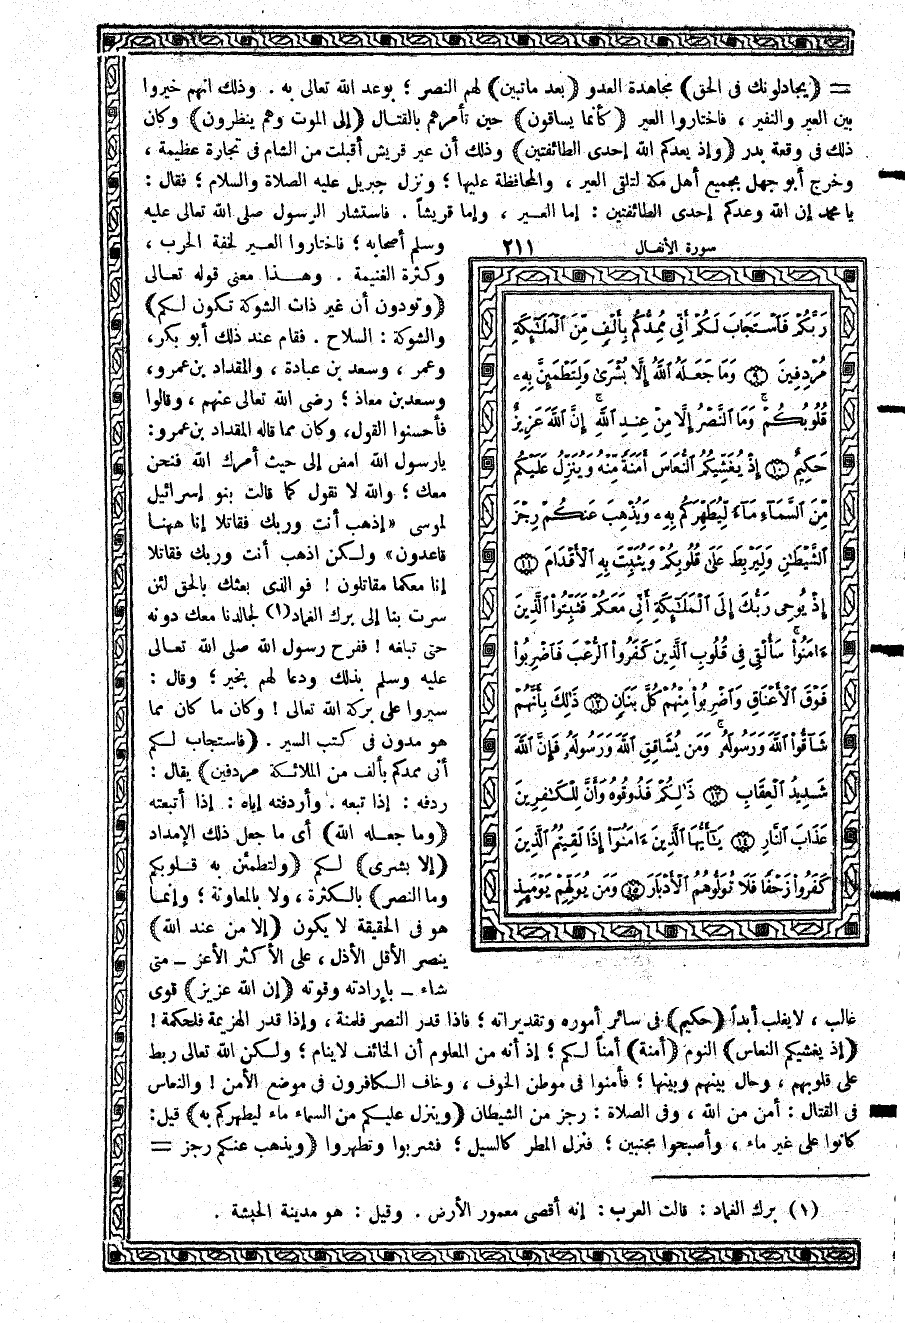 = (يجادلونك فى الحق) مجاهدة العدو (بعد ماتبين) لهم النصر ؛ بوعد الله تعالى به . وذلك انهم خيروا
بين العير والنفير ، فاختاروا العير (كأنما يساقون) حين تأمرهم بالقتال (إلى الموت وهم ينظرون) وكان
ذلك فى وقعة بدر (وإذ يعدكم الله إحدى الطائفتين) وذلك أن عير قريش أقبلت من الشام فى تجارة عظيمة ،
وخرج أبو جهل بجميع أهل مكة لتلقى العير ، والمحافظة عليها ؛ ونزل جبريل عليه الصلاة والسلام ؛ فقال :
يا محمد إن الله وعدكم إحدى الطائفتين : إما العير ، وإما قريشاً . فاستشار الرسول صلى الله تعالى عليه
وسلم أصحابه ؛ فاختاروا العير لخفة الحرب ،
وكثرة الغنيمة . وهذا معنى قوله تعالى
(وتودون أن غير ذات الشوكة تكون لكم)
والشوكة : السلاح . فقام عند ذلك أبو بكر،
وعمر ، وسعد بن عبادة ، والمقداد بن عمرو،
وسعد بن معاذ ؛ رضى الله تعالى عنهم ، وقالوا
فأحسنوا القول، وكان مما قاله المقداد بن عمرو:
يارسول الله امض إلى حيث أمرك الله فنحن
معك ؛ والله لا نقول كما قالت بنو إسرائيل
لموسى «إذهب أنت وربك فقاتلا إنا ههنا
قاعدون» ولكن اذهب أنت وربك فقاتلا
إنا معكما مقاتلون ! فو الذى بعثك بالحق لئن
سرت بنا إلى برك الغماد (١) لجالدنا معك دونه
حتى تبلغه ! ففرح رسول الله صلى الله تعالى
عليه وسلم بذلك ودعا لهم بخير ؛ وقال :
سيروا على بركة الله تعالى ! وكان ما كان مما
هو مدون فى كتب السير . (فاستجاب لكم
أنى ممدكم بألف من الملائكة مردفين) يقال :
ردفه : إذا تبعه . وأردفته إياه : إذا أتبعته
(وما جعله الله) أى ما جعل ذلك الإمداد
(إلا بشرى) لكم (ولتطمئن به قلوبكم
وما النصر) بالكثرة ، ولا بالمعاونة ؛ وإنما
هو فى الحقيقة لا يكون (إلا من عند الله)
ينصر الأقل الأذل ، على الأكثر الأعز ــ متى
شاء ــ بإرادته وقوته (إن الله عزيز) قوى
سورة الأنفال ٢١١
رَبَّكُمْ فَاسْتَجَابَ لَكُمْ أَنِّي مُمِدُّكُم بِأَلْفٍ مِّنَ الْمَلَـٰٓئِكَةِ
مُرْدِفِينَ ٩ وَمَا جَعَلَهُ اللَّهُ إِلَّا بُشْرَىٰ وَلِتَطْمَئِنَّ بِهِۦ
قُلُوبُكُمْ ۚ وَمَا النَّصْرُ إِلَّا مِنْ عِندِ اللَّهِ ۚ إِنَّ اللَّهَ عَزِيزٌ
حَكِيمٌ ١٠ إِذْ يُغَشِّيكُمُ النُّعَاسَ أَمَنَةً مِّنْهُ وَيُنَزِّلُ عَلَيْكُم
مِّنَ السَّمَآءِ مَآءً لِّيُطَهِّرَكُم بِهِۦ وَيُذْهِبَ عَنكُمْ رِجْزَ
الشَّيْطَـٰنِ وَلِيَرْبِطَ عَلَىٰ قُلُوبِكُمْ وَيُثَبِّتَ بِهِ الْأَقْدَامَ ١١
إِذْ يُوحِى رَبُّكَ إِلَى الْمَلَـٰٓئِكَةِ أَنِّى مَعَكُمْ فَثَبِّتُوا الَّذِينَ
ءَامَنُوا ۚ سَأُلْقِى فِى قُلُوبِ الَّذِينَ كَفَرُوا الرُّعْبَ فَاضْرِبُوا
فَوْقَ الْأَعْنَاقِ وَاضْرِبُوا مِنْهُمْ كُلَّ بَنَانٍ ١٢ ذَٰلِكَ بِأَنَّهُمْ
شَآقُّوا اللَّهَ وَرَسُولَهُۥ ۚ وَمَن يُشَاقِقِ اللَّهَ وَرَسُولَهُۥ فَإِنَّ اللَّهَ
شَدِيدُ الْعِقَابِ ١٣ ذَٰلِكُمْ فَذُوقُوهُ وَأَنَّ لِلْكَـٰفِرِينَ
عَذَابَ النَّارِ ١٤ يَـٰٓأَيُّهَا الَّذِينَ ءَامَنُوٓا إِذَا لَقِيتُمُ الَّذِينَ
كَفَرُوا زَحْفًا فَلَا تُوَلُّوهُمُ الْأَدْبَارَ ١٥ وَمَن يُوَلِّهِمْ يَوْمَئِذٍ
غالب ، لايغلب أبداً (حكيم) فى سائر أموره وتقديراته ؛ فاذا قدر النصر فلمنة ، وإذا قدر الهزيمة فلحكمة !
(إذ يغشيكم النعاس) النوم (أمنة) أمناً لكم ؛ إذ أنه من المعلوم أن الخائف لاينام ؛ ولكن الله تعالى ربط
على قلوبهم ، وحال بينهم وبينها ؛ فأمنوا فى موطن الخوف ، وخاف الكافرون فى موضع الأمن ! والنعاس
فى القتال : أمن من الله ، وفى الصلاة : رجز من الشيطان (وينزل عليكم من السماء ماء ليطهركم به) قيل:
كانوا على غير ماء ، وأصبحوا مجنبين ؛ فنزل المطر كالسيل ؛ فشربوا وتطهروا (ويذهب عنكم رجز =
(١) برك الغماد : قالت العرب : إنه أقصى معمور الأرض . وقيل : هو مدينة الحبشة .